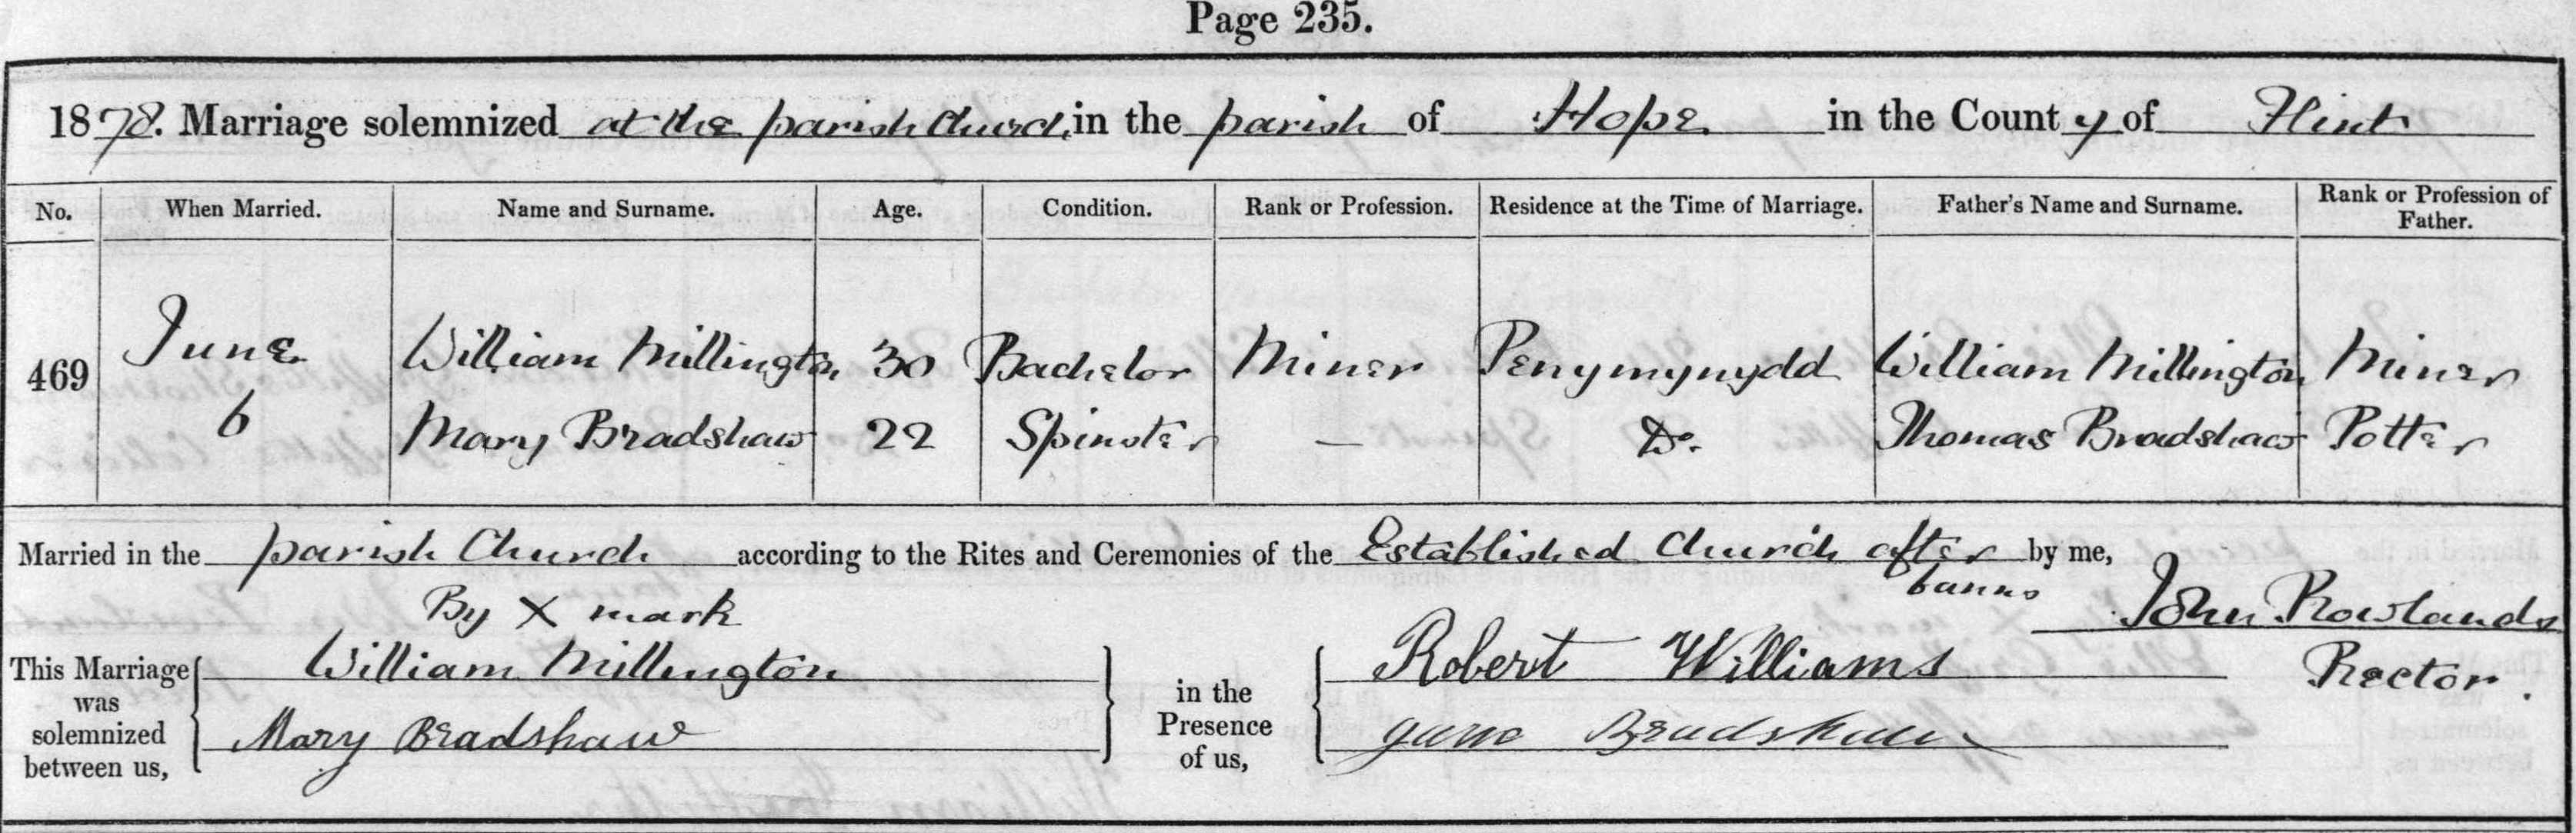 Page 235.
1878. Marriage solemnized at the parish Church in the parish of Hope in the County of Flint
No. When Married. Name and Surname. Age. Condition. Rank or Profession. Residence at the Time of Marriage. Father's Name and Surname. Rank or Profession of Father.
469 June 6 William Millington 30 Bachelor Miner Penymynydd William Millington Miner
Mary Bradshaw 22 Spinster — Do. Thomas Bradshaw Potter
Married in the parish Church according to the Rites and Ceremonies of the Established Church after banns by me,
John Rowlands
Rector.
This Marriage was solemnized between us,
By X mark
William Millington
Mary Bradshaw
in the Presence of us,
Robert Williams
Jane Bradshaw